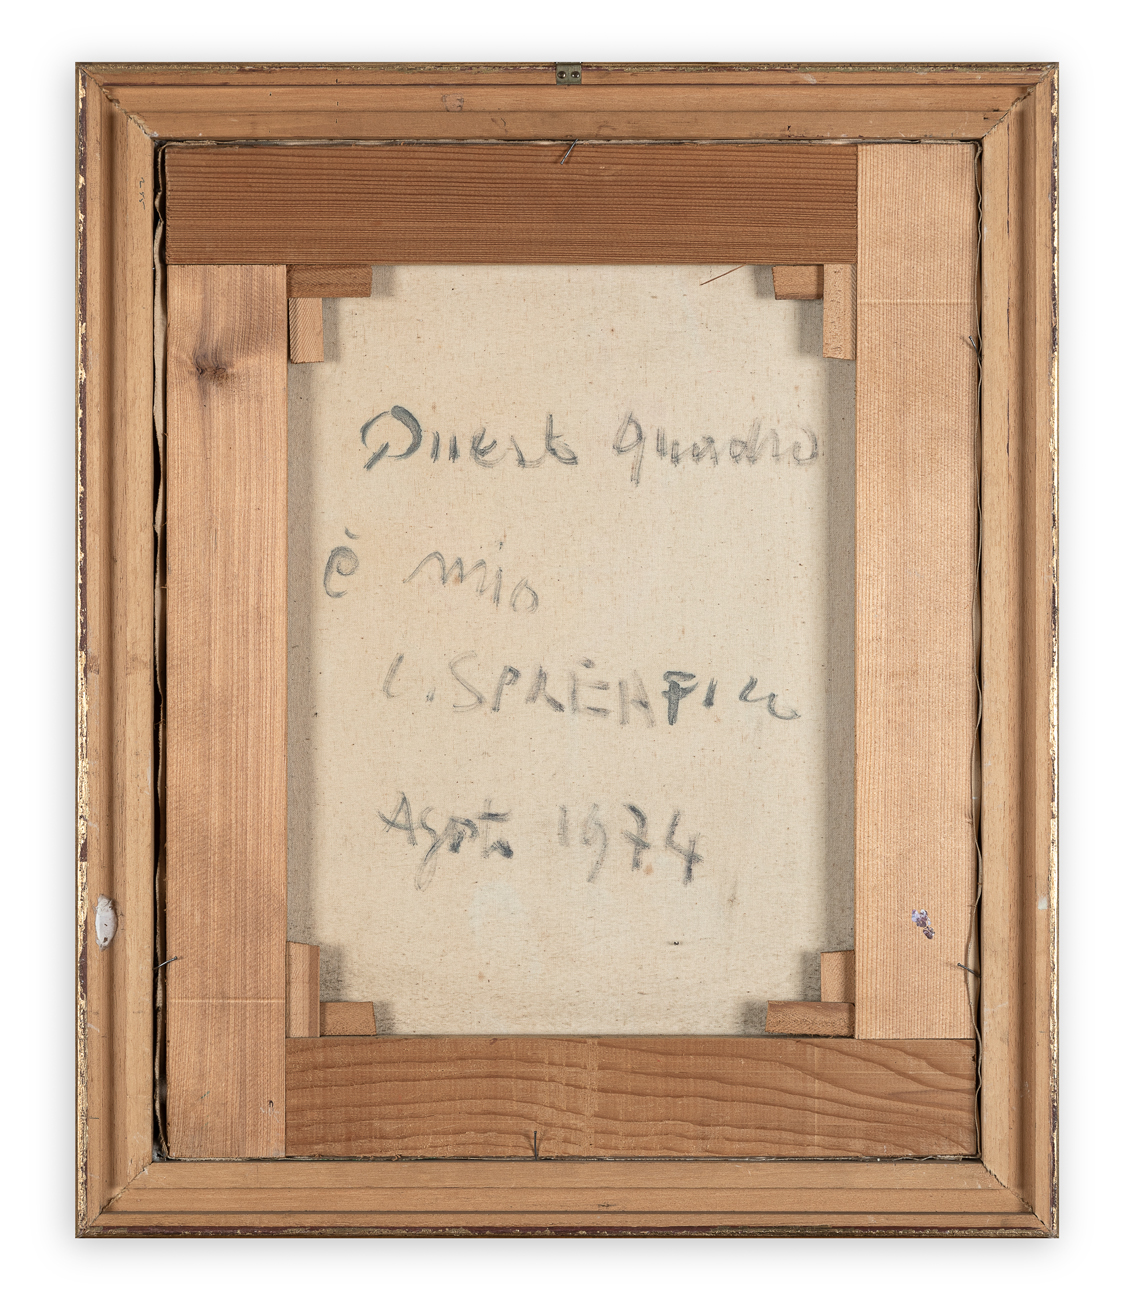 Questo quadro
è mio
L. SPREAFICO
Agosto 1974